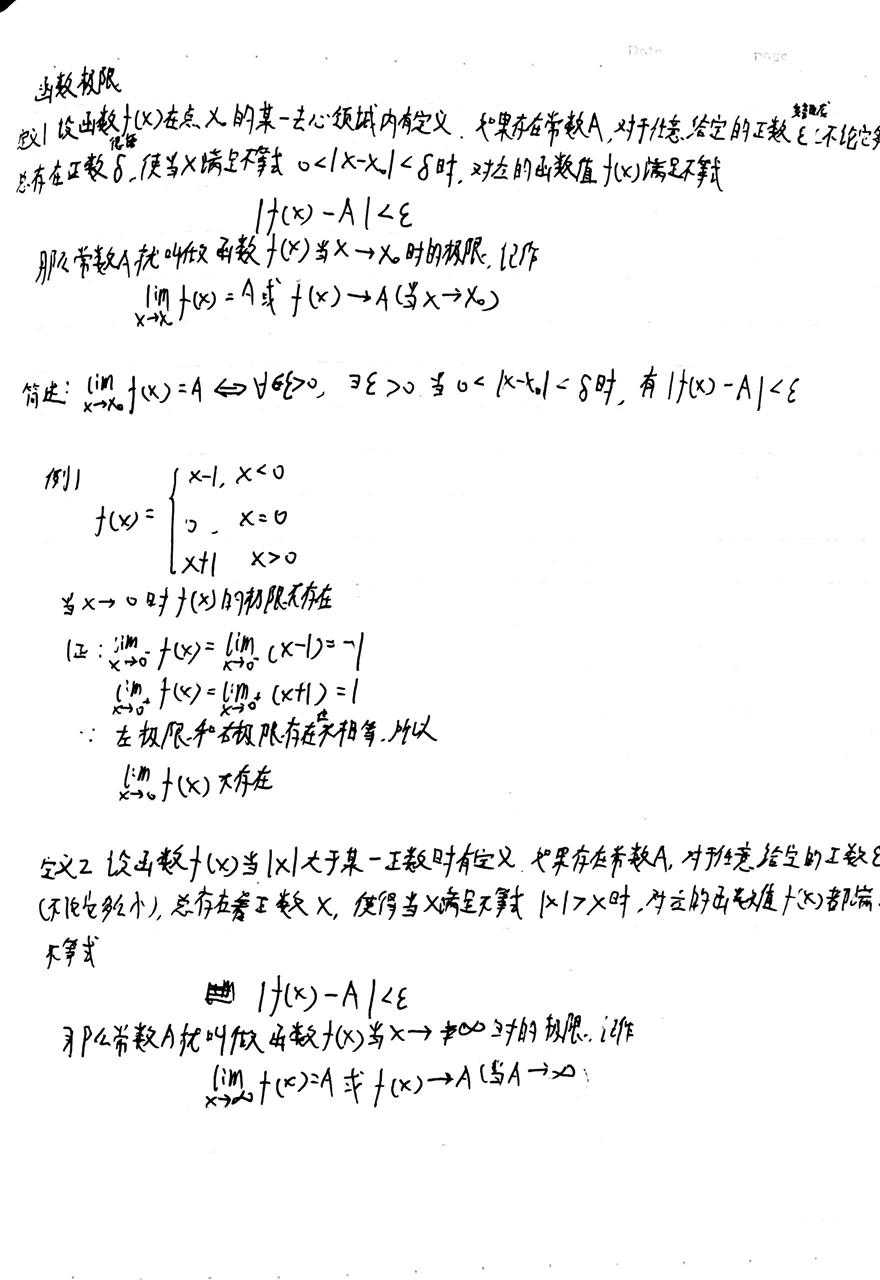 Date
page
函数极限
定义1 设函数f(x)在点x₀的某一去心领域内有定义. 如果存在常数A,对于任意给定的正数ε(不论它多
总存在正数δ,使当x满足不等式 0<|x-x₀|<δ时,对应的函数值f(x)满足不等式
|f(x)-A|<ε
那么常数A就叫做函数f(x)当x→x₀时的极限,记作
lim x→x₀ f(x)=A或 f(x)→A(当x→x₀)
简述: lim x→x₀ f(x)=A⇔∀ε>0, ∃ε>0 当0<|x-x₀|<δ时,有|f(x)-A|<ε
例1
f(x)={ x-1, x<0
0, x=0
x+1 x>0
当x→0时f(x)的极限不存在
证: lim x→0⁻ f(x)=lim x→0⁻ (x-1)=-1
lim x→0⁺ f(x)=lim x→0⁺ (x+1)=1
∵ 左极限和右极限存在但不相等,所以
lim x→0 f(x)不存在
定义2 设函数f(x)当|x|大于某一正数时有定义. 如果存在常数A,对于任意给定的正数ε
(不论它多么小),总存在着正数X,使得当x满足不等式 |x|>X时,对应的函数值f(x)都满
不等式
|f(x)-A|<ε
那么常数A就叫做函数f(x)当x→∞时的极限,记作
lim x→∞ f(x)=A或f(x)→A(当A→∞)